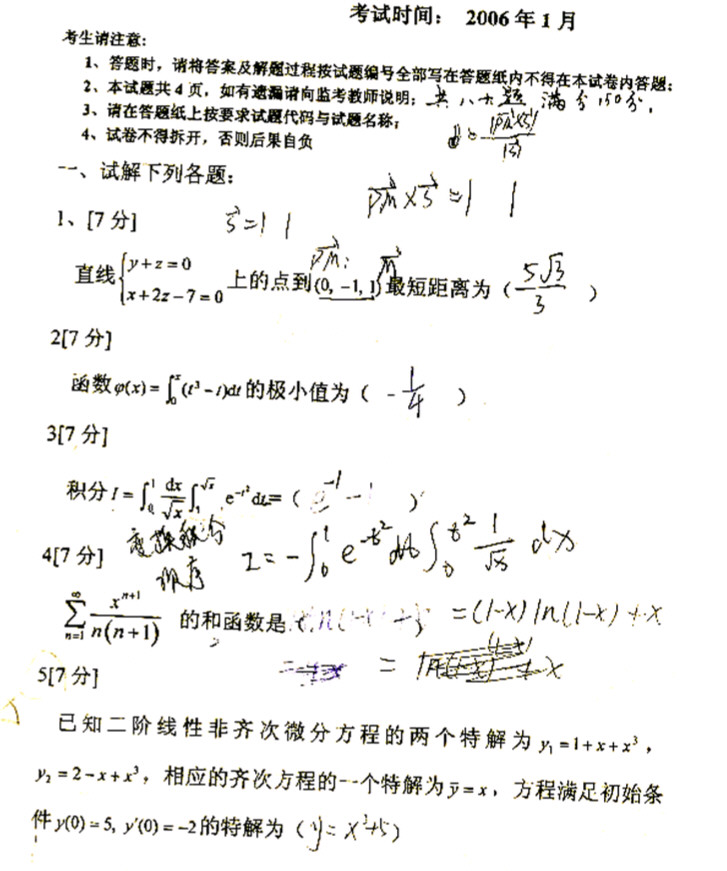 考试时间： 2006年1月
考生请注意：
1、答题时，请将答案及解题过程按试题编号全部写在答题纸内不得在本试卷内答题；
2、本试题共4页，如有遗漏请向监考教师说明； 共八大题 满分150分，
3、请在答题纸上按要求试题代码与试题名称；
4、试卷不得拆开，否则后果自负
d = |PM×S| / |S|
一、试解下列各题：
PM×S =| |
1、[7分] S=| |
PM: M
直线{y+z=0 x+2z-7=0 上的点到(0, -1, 1)最短距离为（ 5√3/3 ）
2[7分]
函数φ(x)=∫₀ˣ(t³-t)dt的极小值为（ -1/4 ）
3[7分]
积分I=∫₀¹ dx/√x ∫₁^√x e^(-t²)dt=（ e⁻¹-1 ）
变换积分
次序
4[7分] I=-∫₀¹ e^(-t²)dt∫₀^t² 1/√x dx
∑_(n=1)^∞ x^(n+1)/n(n+1) 的和函数是 =(1-x)ln(1-x)+x
5[7分]
已知二阶线性非齐次微分方程的两个特解为 y₁=1+x+x³，
y₂=2-x+x³，相应的齐次方程的一个特解为ȳ=x，方程满足初始条
件y(0)=5, y′(0)=-2的特解为（y=x³+5）